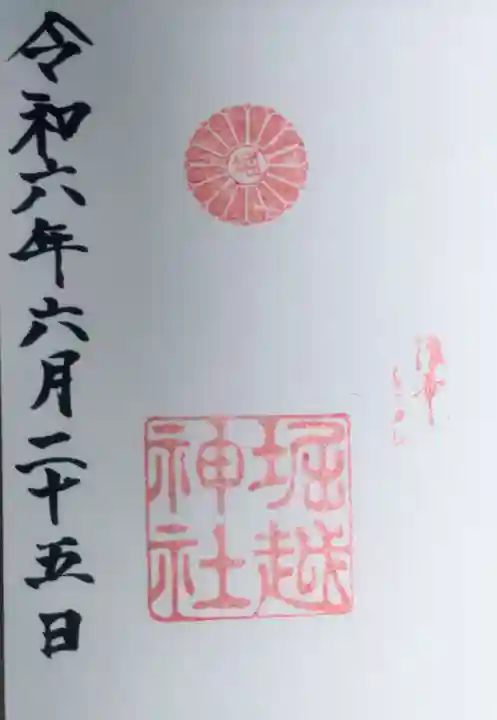 堀越
神社
令和六年六月二十五日